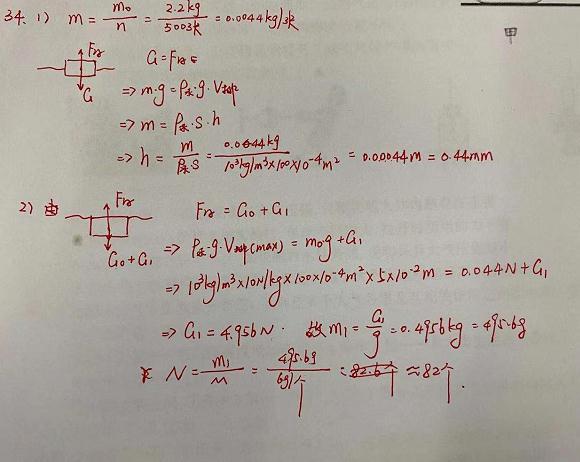 34. 1) m = m₀/n = 2.2kg/500张 = 0.0044kg/张
甲
F浮
G
G = F浮
=> m·g = ρ水·g·V排
=> m = ρ水·S·h
=> h = m/ρ水·S = 0.0044kg/10³kg/m³×100×10⁻⁴m² = 0.00044m = 0.44mm
2) 由
F浮
G₀+G₁
F浮 = G₀+G₁
=> ρ水·g·V排(max) = m₀g+G₁
=> 10³kg/m³×10N/kg×100×10⁻⁴m²×5×10⁻²m = 0.044N+G₁
=> G₁ = 4.956N. 故m₁ = G₁/g = 0.4956kg = 495.6g
N = m₁/m = 495.6g/6g/个 = 82.6个 ≈ 82个.